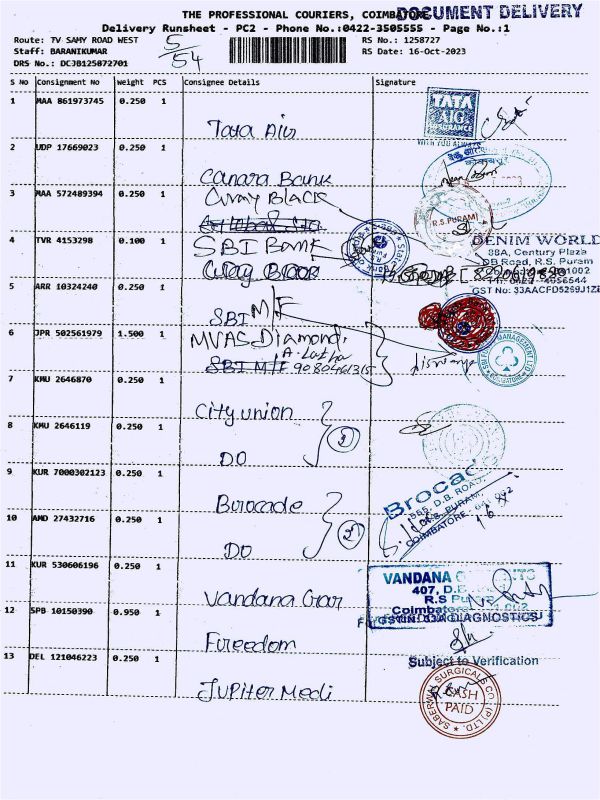 THE PROFESSIONAL COURIERS, COIMBATORE
DOCUMENT DELIVERY
Delivery Runsheet - PC2 - Phone No.:0422-3505555 - Page No.:1
Route: TV SAMY ROAD WEST
5/54
RS No.: 1258727
Staff: BARANIKUMAR
RS Date: 16-Oct-2023
DRS No.: DCJB125872701
S No Consignment No Weight PCS Consignee Details Signature
1 MAA 861973745 0.250 1
Tata AIG
TATA AIG INSURANCE
WITH YOU ALWAYS
2 UDP 17669023 0.250 1
Canara Bank
3 MAA 572489394 0.250 1
Curay Black
R.S. PURAM
4 TVR 4153298 0.100 1
SBI Bank
State Bank
DENIM WORLD
88A, Century Plaza
DB Road, R.S. Puram
GST No: 33AACFD5269J1Z
5 ARR 10324240 0.250 1
SBI M/F
6 JPR 502561979 1.500 1
MVAS Diamond
SBI M/F 9080461315
7 KMU 2646870 0.250 1
City union
8 KMU 2646119 0.250 1
DO
9 KUR 7000302123 0.250 1
Brocade
555, D.B. ROAD,
R.S. PURAM,
COIMBATORE
10 AMD 27432716 0.250 1
DO
11 KUR 530606196 0.250 1
Vandana Gar
VANDANA
407, D.B
R.S Puram
Coimbatore
DIAGNOSTICS
12 SPB 10150390 0.950 1
Freedom
13 DEL 121046223 0.250 1
Subject to Verification
Jupiter Medi
SABERWAL SURGICALS CO. (P) LTD.
CASH
PAID